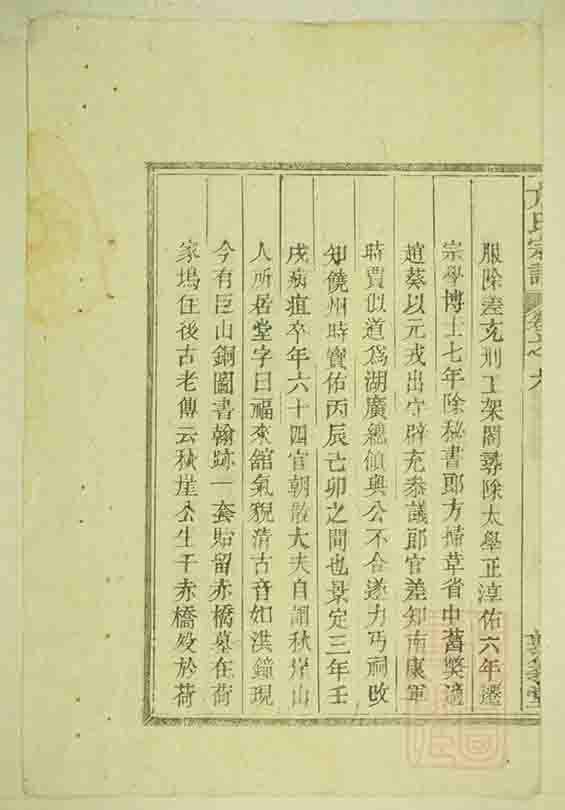 方氏宗譜 卷之六
服除差克刑工架閣尋除太學正淳佑六年遷
宗學博士七年除秘書郎方掃草省中舊獘適
趙葵以元戎出守辟充叅議郎官差知南康軍
時賈似道爲湖廣總領與公不合遂力丐祠改
知饒州時寶佑丙辰己卯之間也景定三年壬
戌病疽卒年六十四官朝散大夫自謂秋崖山
人所居堂字曰福來舘氣貌清古音如洪鐘現
今有巨山銅圖書翰跡一套貽留赤橋墓在荷
家塢住後古老傳云秋崖公生于赤橋殁於荷